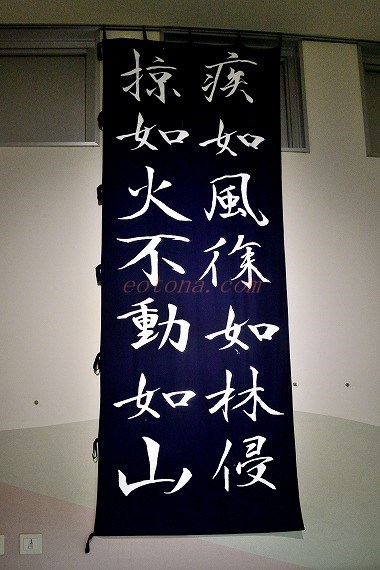 疾如風徐如林侵
掠如火不動如山
eotona.com